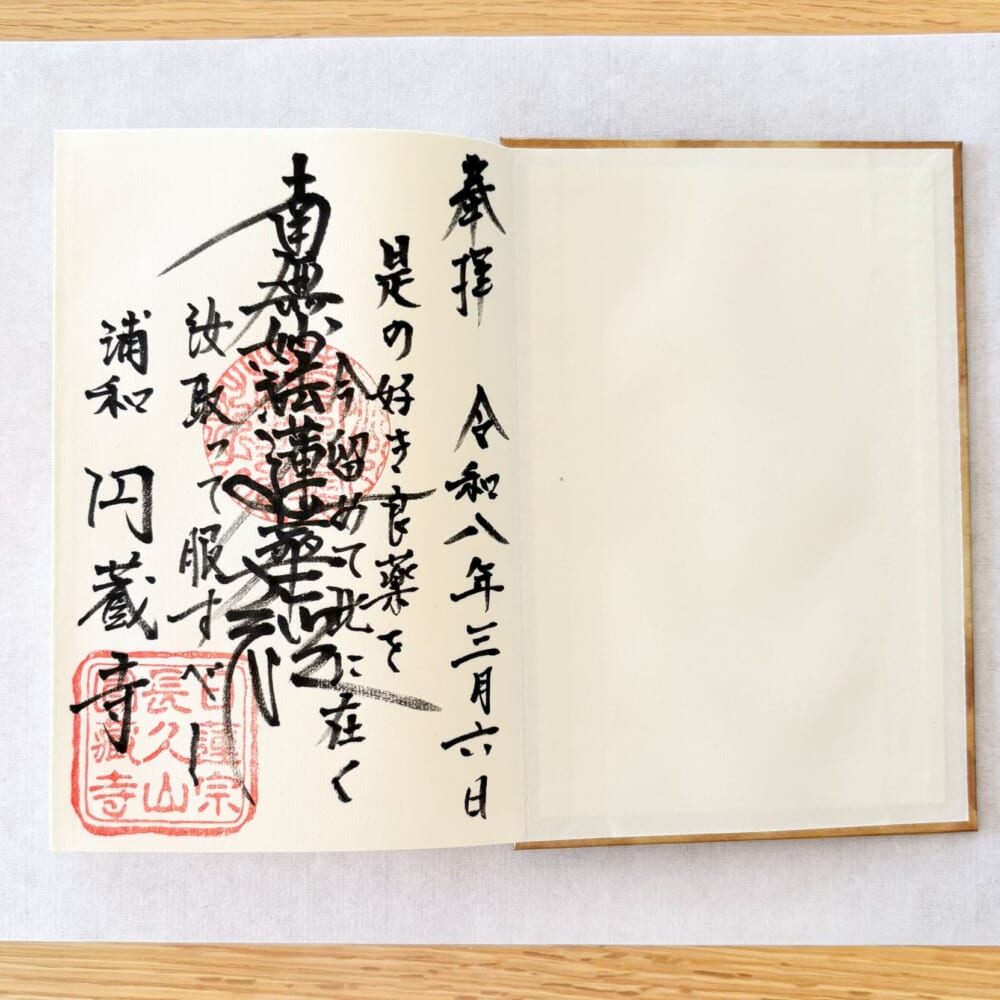 奉拝 令和八年三月六日
是の好き良薬を
今留めて此に在く
南無妙法蓮華経
汝取って服すべし
浦和 円蔵寺
日蓮宗
長久山
圓藏寺